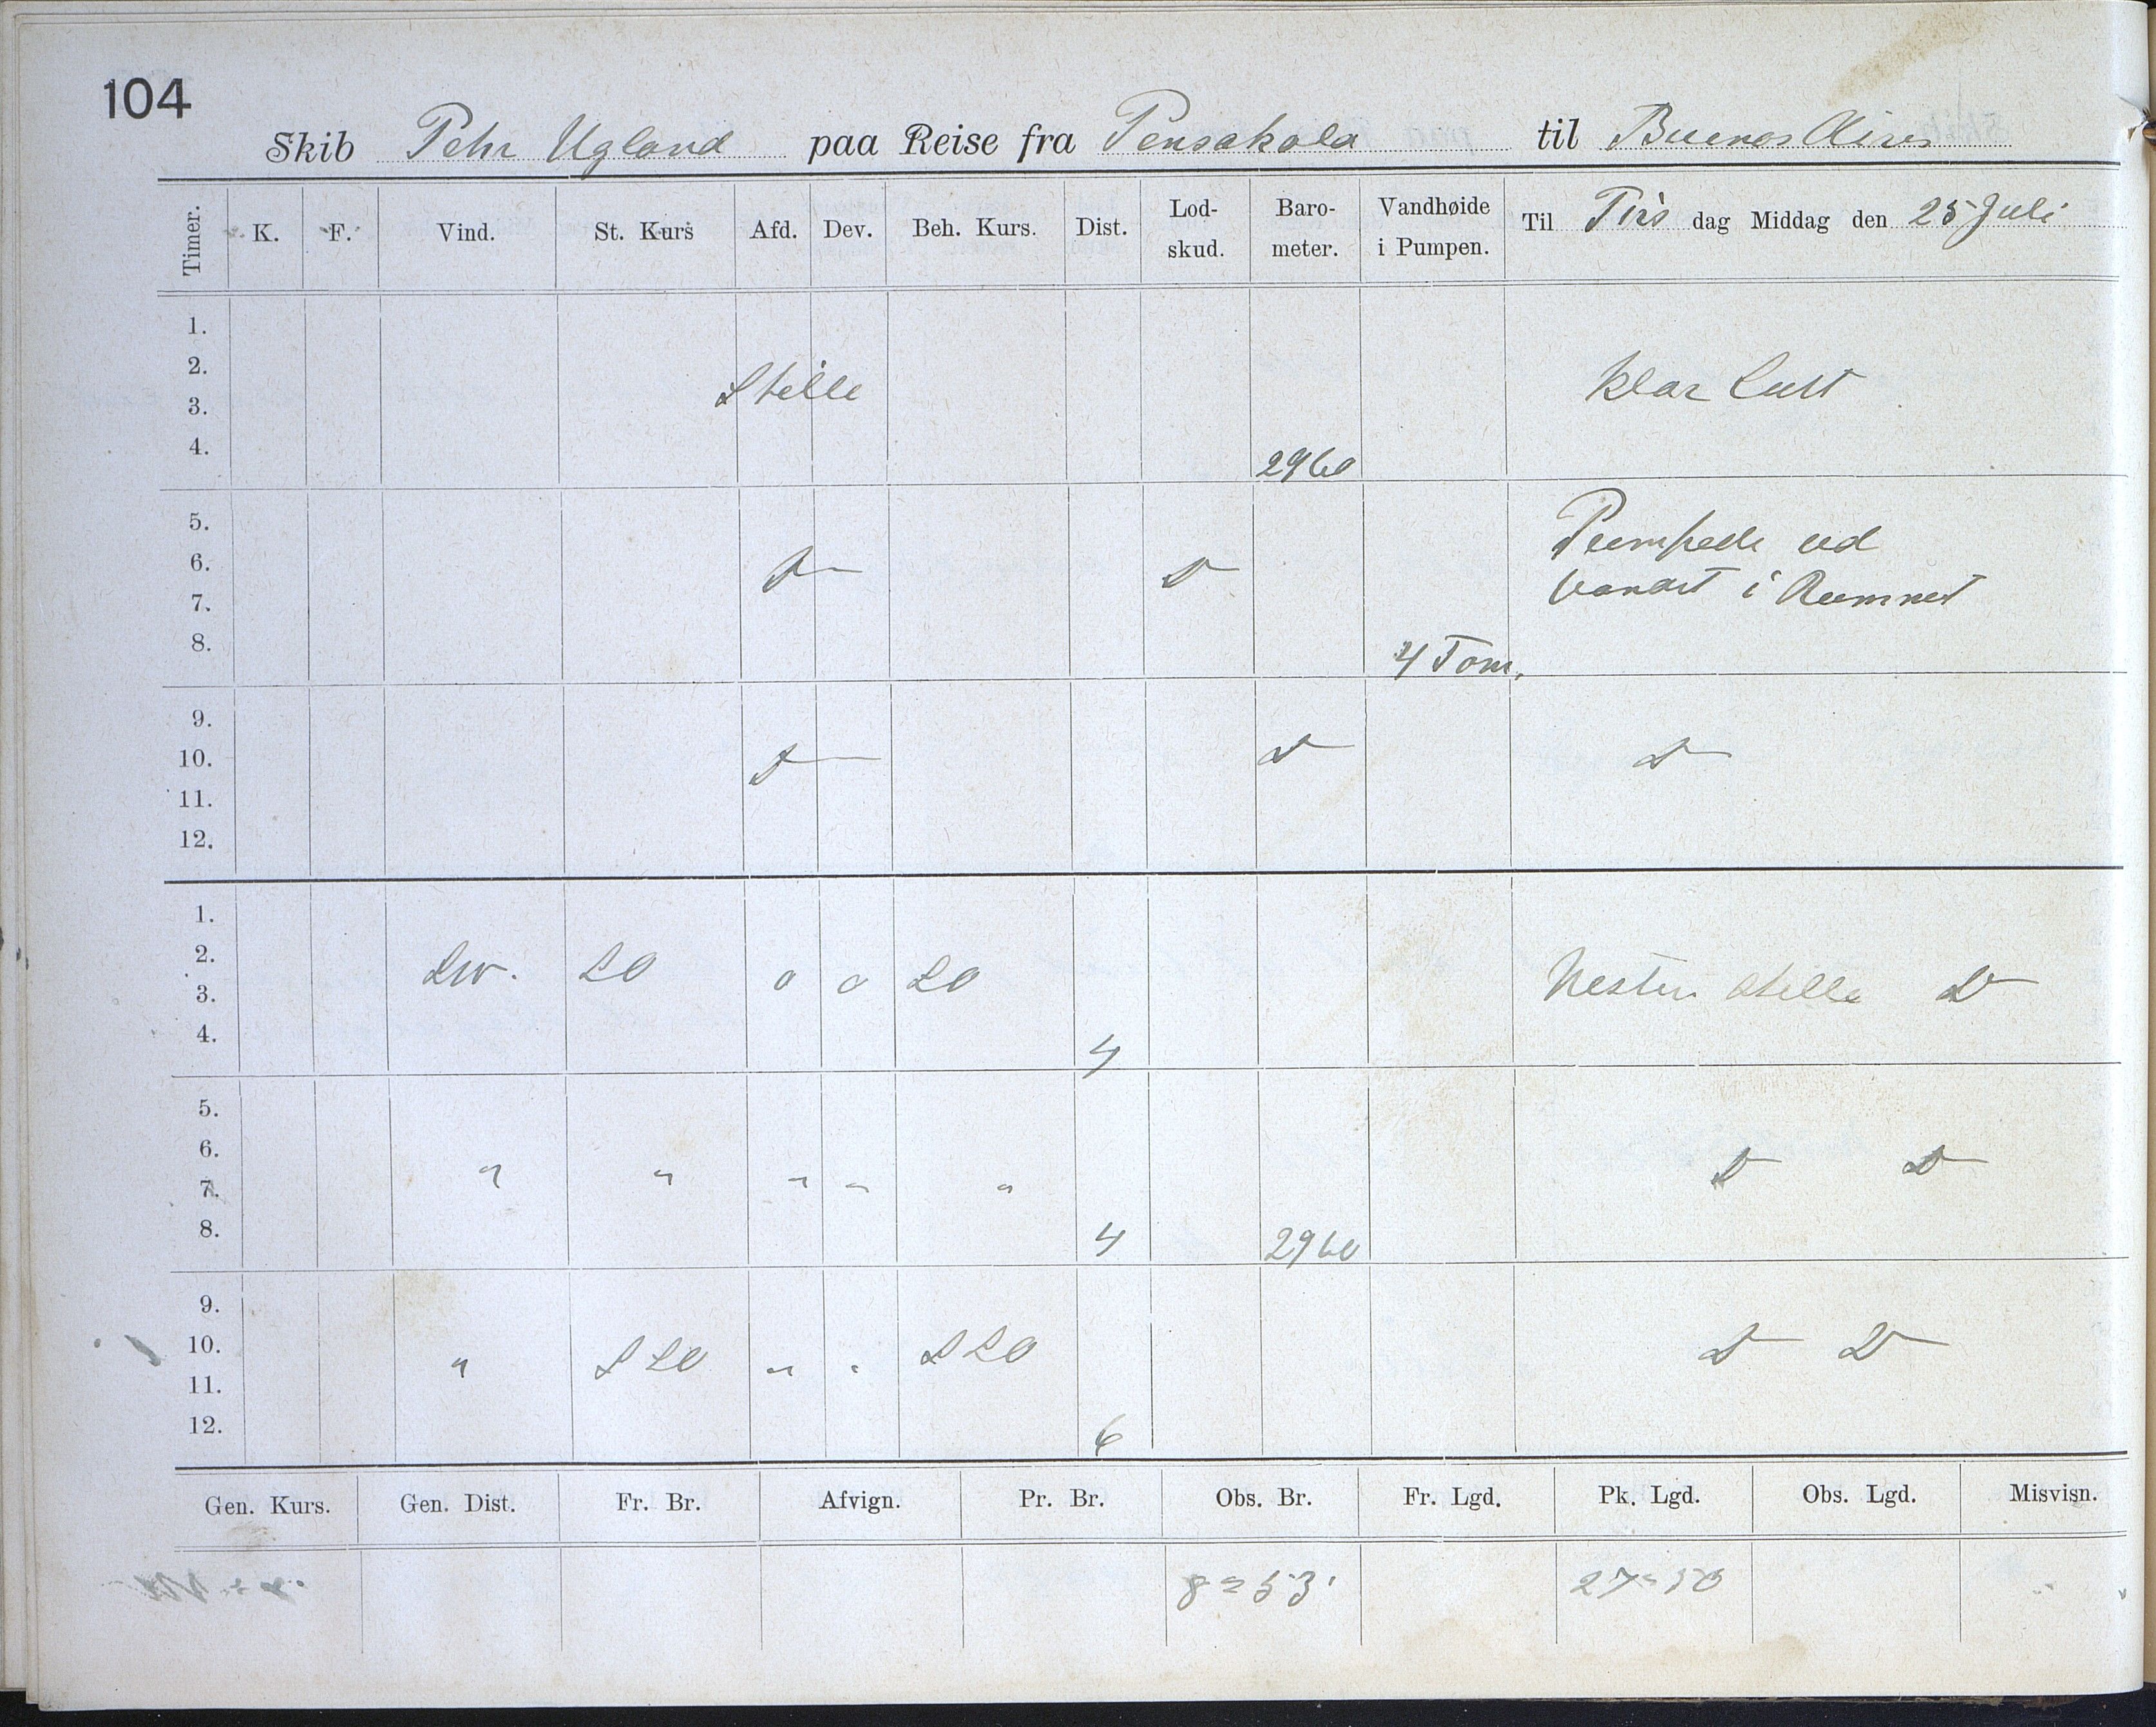 104
Skib Pehr Ugland paa Reise fra Pensakola til Buenos Aires
Timer. K. F. Vind. St. Kurs Afd. Dev. Beh. Kurs. Dist. Lod-skud. Baro-meter. Vandhøide i Pumpen. Til Tirs dag Middag den 25 Juli
1.
2.
Stille klar Luft
3.
4. 2960
5. Pumpede ud
6. D D
7. vandet i Rummet
8. 4 Tom.
9.
10. D D D
11.
12.
1.
2.
SW. SO 0 0 SO Nesten stille D
3.
4. 4
5.
6. D D
7. " " " " "
8. 4 2960
9.
10. " SSO " " SSO D D
11.
12. 6
Gen. Kurs. Gen. Dist. Fr. Br. Afvign. Pr. Br. Obs. Br. Fr. Lgd. Pk. Lgd. Obs. Lgd. Misvisn.
8=53' 27=50